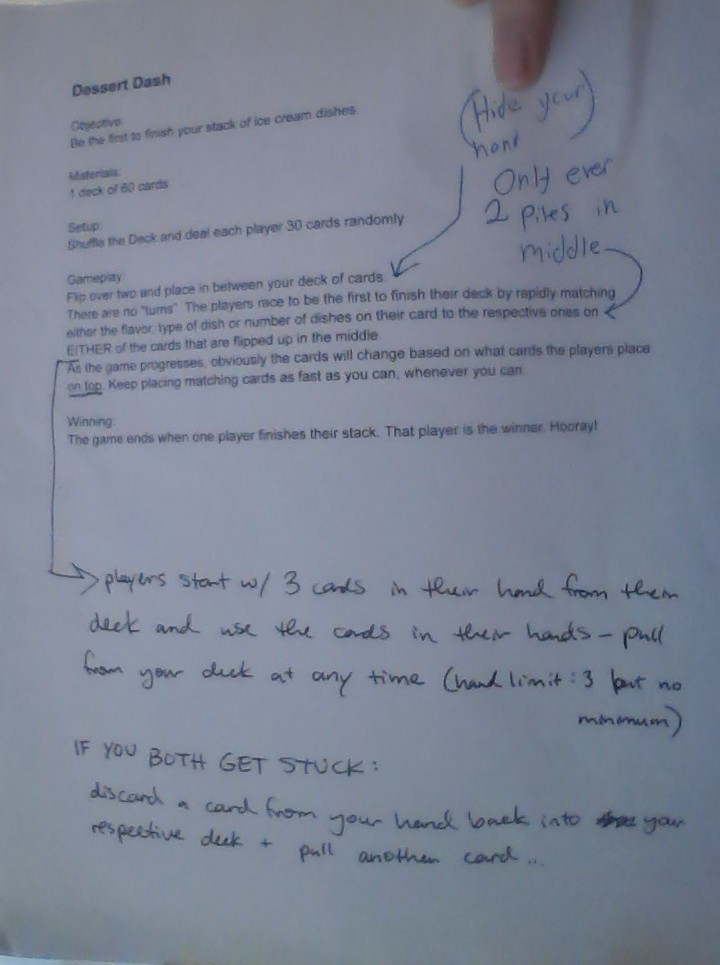 Dessert Dash
Objective:
Be the first to finish your stack of ice cream dishes.
Materials:
1 deck of 60 cards
Setup:
Shuffle the Deck and deal each player 30 cards randomly
(Hide your
hand)
Only ever
2 piles in
middle
Gameplay:
Flip over two and place in between your deck of cards.
There are no "turns". The players race to be the first to finish their deck by rapidly matching
either the flavor, type of dish or number of dishes on their card to the respective ones on
EITHER of the cards that are flipped up in the middle.
As the game progresses, obviously the cards will change based on what cards the players place
on top. Keep placing matching cards as fast as you can, whenever you can.
Winning:
The game ends when one player finishes their stack. That player is the winner. Hooray!
players start w/ 3 cards in their hand from their
deck and use the cards in their hands - pull
from your deck at any time (hand limit: 3 but no
minimum)
IF YOU BOTH GET STUCK:
discard a card from your hand back into your
respective deck + pull another card...